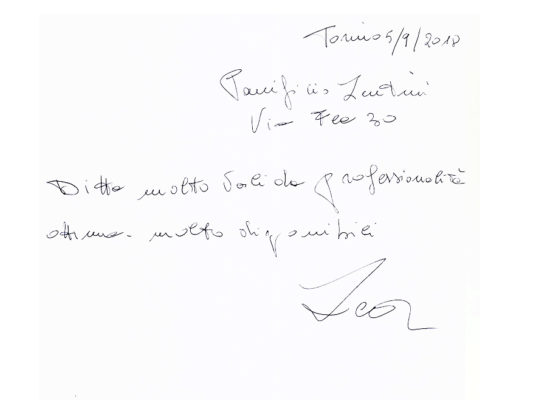 Torino 5/9/2018
Panificio Lentini
Via Fea 30
Ditta molto valida professionalità
ottima. molto disponibili